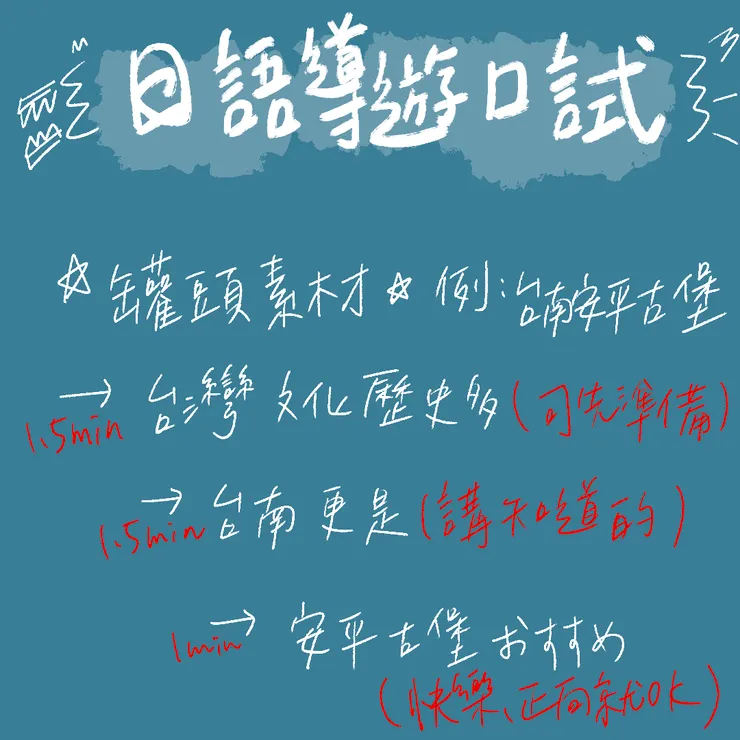 日語導遊口試
☆罐頭素材☆ 例:台南安平古堡
→ 台灣文化歷史多(可先準備)
1.5min
→ 台南更是(講知道的)
1.5min
→ 安平古堡おすすめ
1min
(快樂、正向就OK)